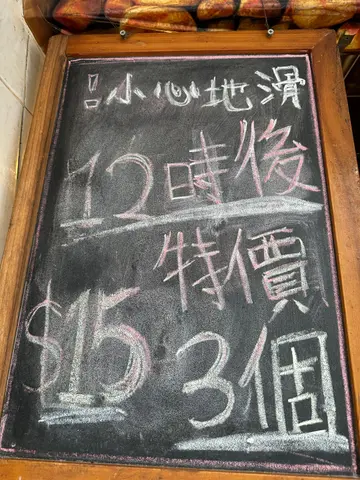 !小心地滑
12時後
特價
$15 3個